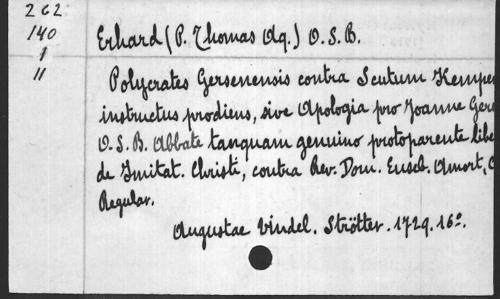 262
140
1
11
Erhard (P. Thomas Aq.) O. S. B.
Polycrates Gersenensis contra Scutum Kempe
instructus prodiens, sive Apologia pro Joanne Gers
O. S. B. Abbate tanquam genuino protoparente libe
de Imitat. Christi, contra Rev. Dom. Euseb. Amort, C
Regular.
Augustae Vindel. Strötter. 1729. 16º.